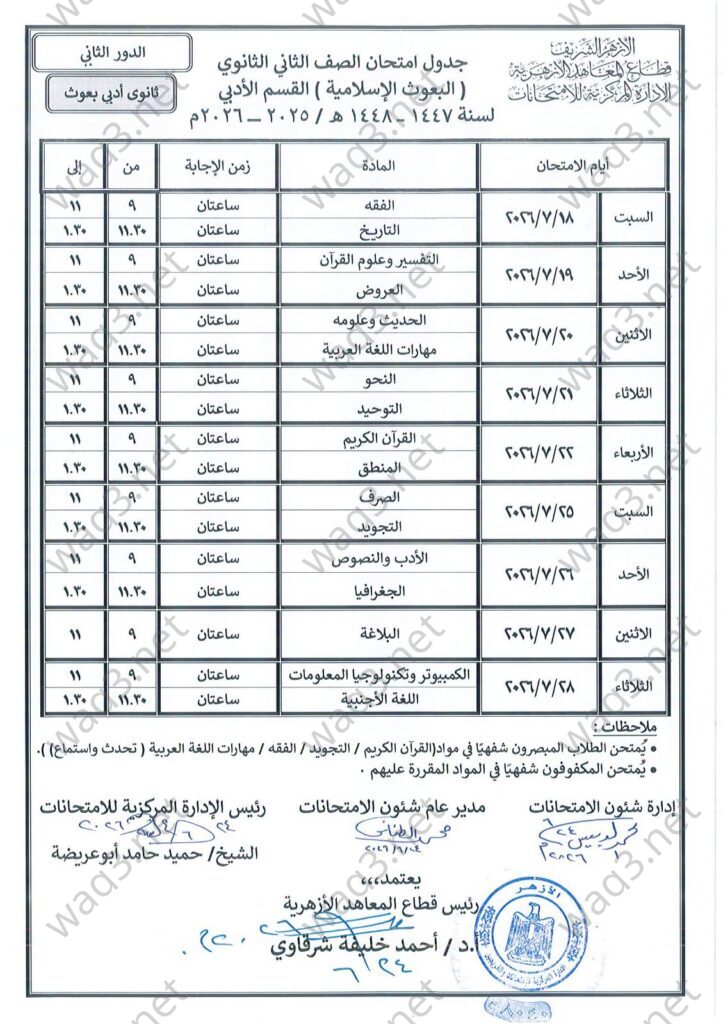 الأزهر الشريف
قطاع المعاهد الأزهرية
الإدارة المركزية للامتحانات
جدول امتحان الصف الثاني الثانوي
( البعوث الإسلامية ) القسم الأدبي
لسنة ١٤٤٧ ـ ١٤٤٨ هـ / ٢٠٢٥ ـ ٢٠٢٦م
الدور الثاني
ثانوى أدبي بعوث
أيام الامتحان المادة زمن الإجابة من إلى
السبت ٢٠٢٦/٧/١٨ الفقه ساعتان ٩ ١١
التاريخ ساعتان ١١.٣٠ ١.٣٠
الأحد ٢٠٢٦/٧/١٩ التفسير وعلوم القرآن ساعتان ٩ ١١
العروض ساعتان ١١.٣٠ ١.٣٠
الاثنين ٢٠٢٦/٧/٢٠ الحديث وعلومه ساعتان ٩ ١١
مهارات اللغة العربية ساعتان ١١.٣٠ ١.٣٠
الثلاثاء ٢٠٢٦/٧/٢١ النحو ساعتان ٩ ١١
التوحيد ساعتان ١١.٣٠ ١.٣٠
الأربعاء ٢٠٢٦/٧/٢٢ القرآن الكريم ساعتان ٩ ١١
المنطق ساعتان ١١.٣٠ ١.٣٠
السبت ٢٠٢٦/٧/٢٥ الصرف ساعتان ٩ ١١
التجويد ساعتان ١١.٣٠ ١.٣٠
الأحد ٢٠٢٦/٧/٢٦ الأدب والنصوص ساعتان ٩ ١١
الجغرافيا ساعتان ١١.٣٠ ١.٣٠
الاثنين ٢٠٢٦/٧/٢٧ البلاغة ساعتان ٩ ١١
الثلاثاء ٢٠٢٦/٧/٢٨ الكمبيوتر وتكنولوجيا المعلومات ساعتان ٩ ١١
اللغة الأجنبية ساعتان ١١.٣٠ ١.٣٠
ملاحظات :
• يُمتحن الطلاب المبصرون شفهيًا في مواد(القرآن الكريم / التجويد / الفقه / مهارات اللغة العربية ( تحدث واستماع) ).
• يُمتحن المكفوفون شفهيًا في المواد المقررة عليهم ٠
إدارة شئون الامتحانات
مدير عام شئون الامتحانات
رئيس الإدارة المركزية للامتحانات
الشيخ/ حميد حامد أبوعريضة
يعتمد،،،
رئيس قطاع المعاهد الأزهرية
أ.د / أحمد خليفة شرقاوي
الأزهر
waq3.net